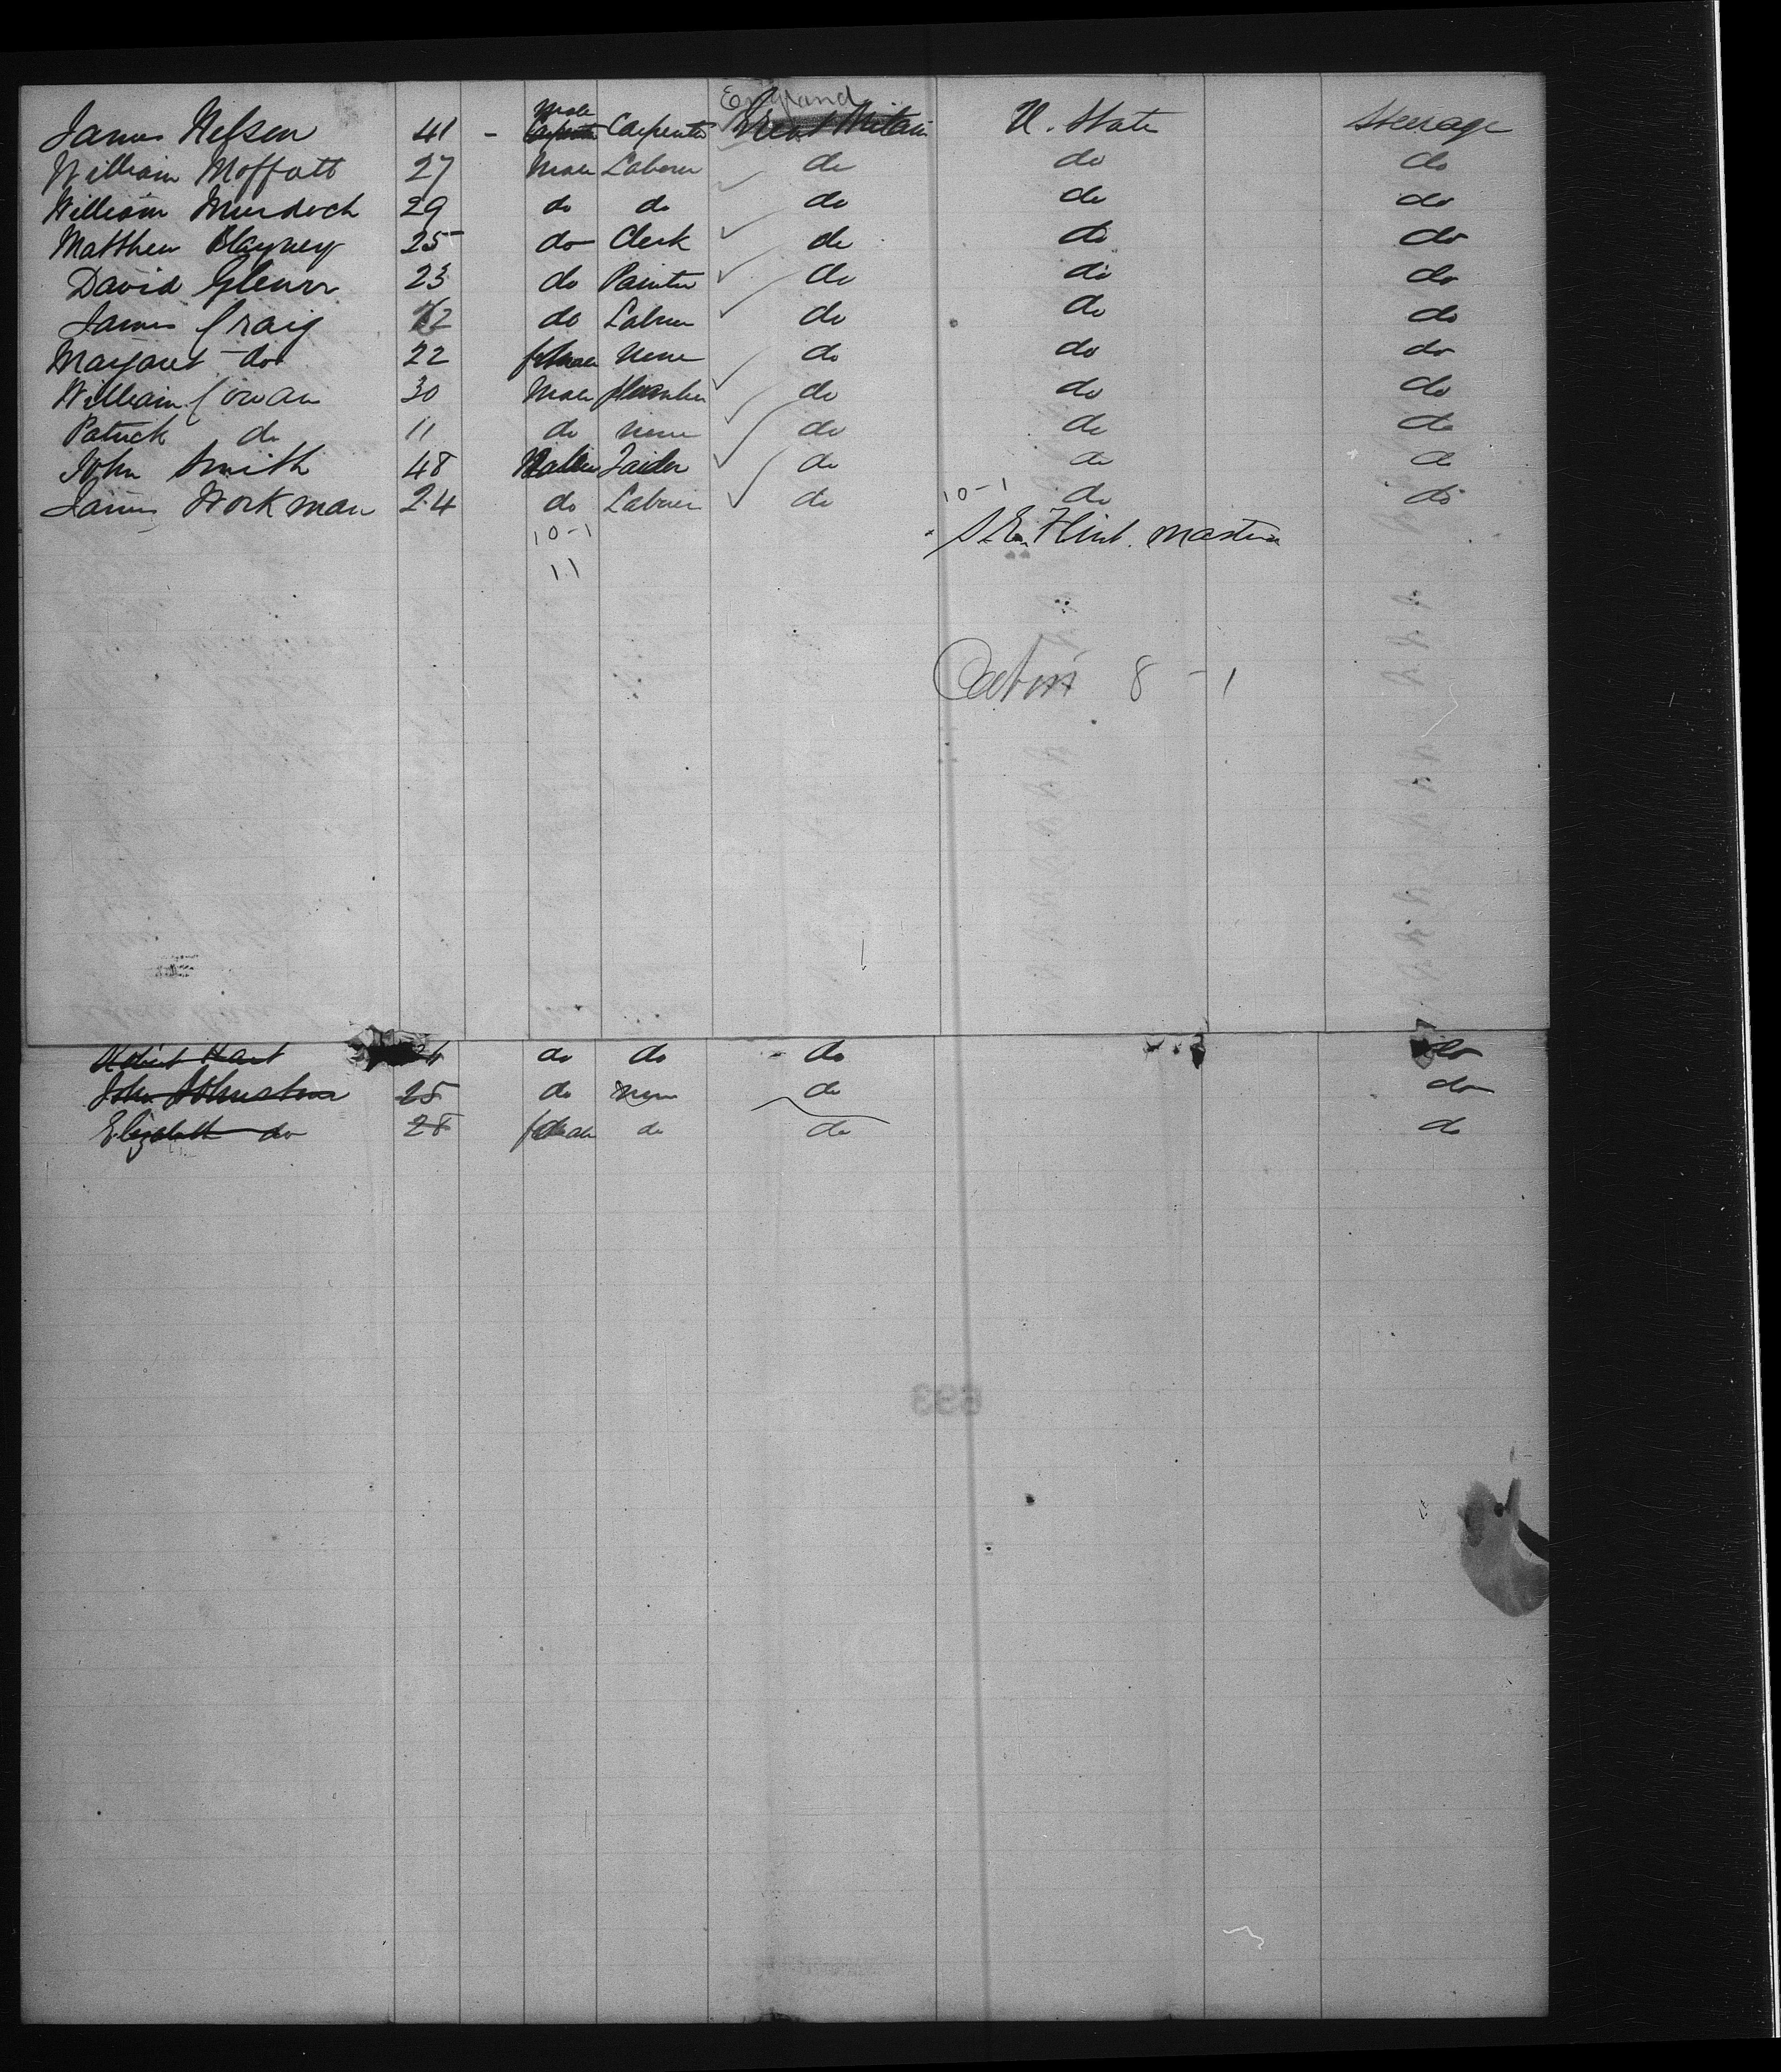 England
James Nelson 41 - Male Carpenter Carpenter Great Britain U. State Steerage
William Moffatt 27 Male Laborer do do do
William Murdoch 29 do do do do do
Matthew Blayney 25 do Clerk do do do
David Glenn 23 do Painter do do do
James Craig 22 do Laborer do do do
Margaret do 22 female none do do do
William Cowan 30 Male Plumber do do do
Patrick do 11 do none do do do
John Smith 48 Male do do do
James Workman 24 do Laborer do 10-1 do do
10-1 Flint. Master
11
Cabin 8 - 1
Robert Hart do do do do
John Johnston 25 do none do do
Elizabeth do 28 female do do do
693